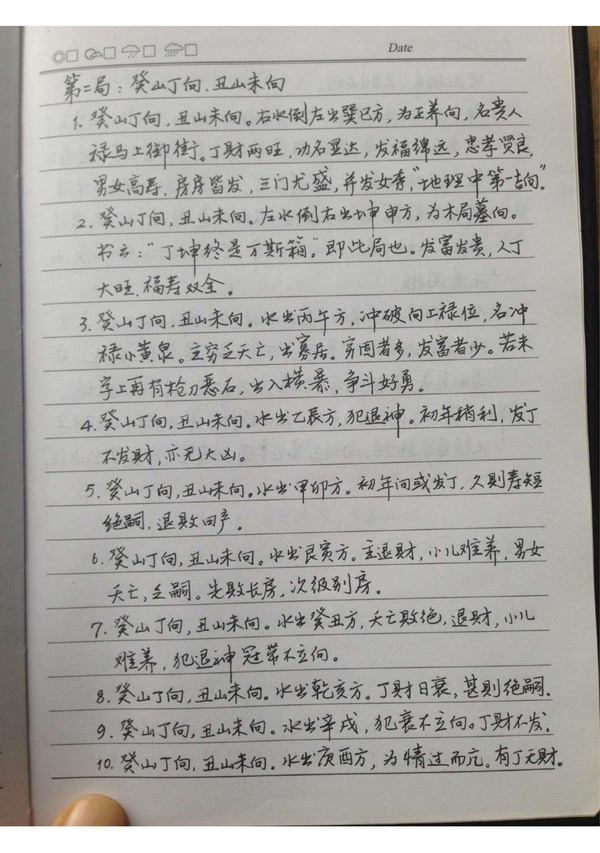 Date
第二局：癸山丁向、丑山未向
1. 癸山丁向，丑山未向。右水倒左出巽巳方，为正养向，名贵人
禄马上御街。丁财两旺，功名显达，发福绵远，忠孝贤良，
男女高寿，房房皆发，三门尤盛，并发女秀，"地理中第一吉向"。
2. 癸山丁向，丑山未向。左水倒右出坤申方，为木局墓向。
书云："丁坤终是万斯箱。"即此局也。发富发贵，人丁
大旺，福寿双全。
3. 癸山丁向，丑山未向。水出丙午方，冲破向上禄位，名冲
禄小黄泉。主穷乏夭亡，出寡居。穷困者多，发富者少。若未
字上再有枪刀恶石，出入横暴，争斗好勇。
4. 癸山丁向，丑山未向。水出乙辰方，犯退神。初年稍利，发丁
不发财，亦无大凶。
5. 癸山丁向，丑山未向。水出甲卯方。初年间或发丁，久则寿短
绝嗣，退败田产。
6. 癸山丁向，丑山未向。水出艮寅方。主退财，小儿难养，男女
夭亡，乏嗣。先败长房，次级别房。
7. 癸山丁向，丑山未向。水出癸丑方，夭亡败绝，退财，小儿
难养，犯退神冠带不立向。
8. 癸山丁向，丑山未向。水出乾亥方。丁财日衰，甚则绝嗣。
9. 癸山丁向，丑山未向。水出辛戌，犯衰不立向。丁财不发。
10. 癸山丁向，丑山未向。水出庚酉方，为情过而亢。有丁无财。